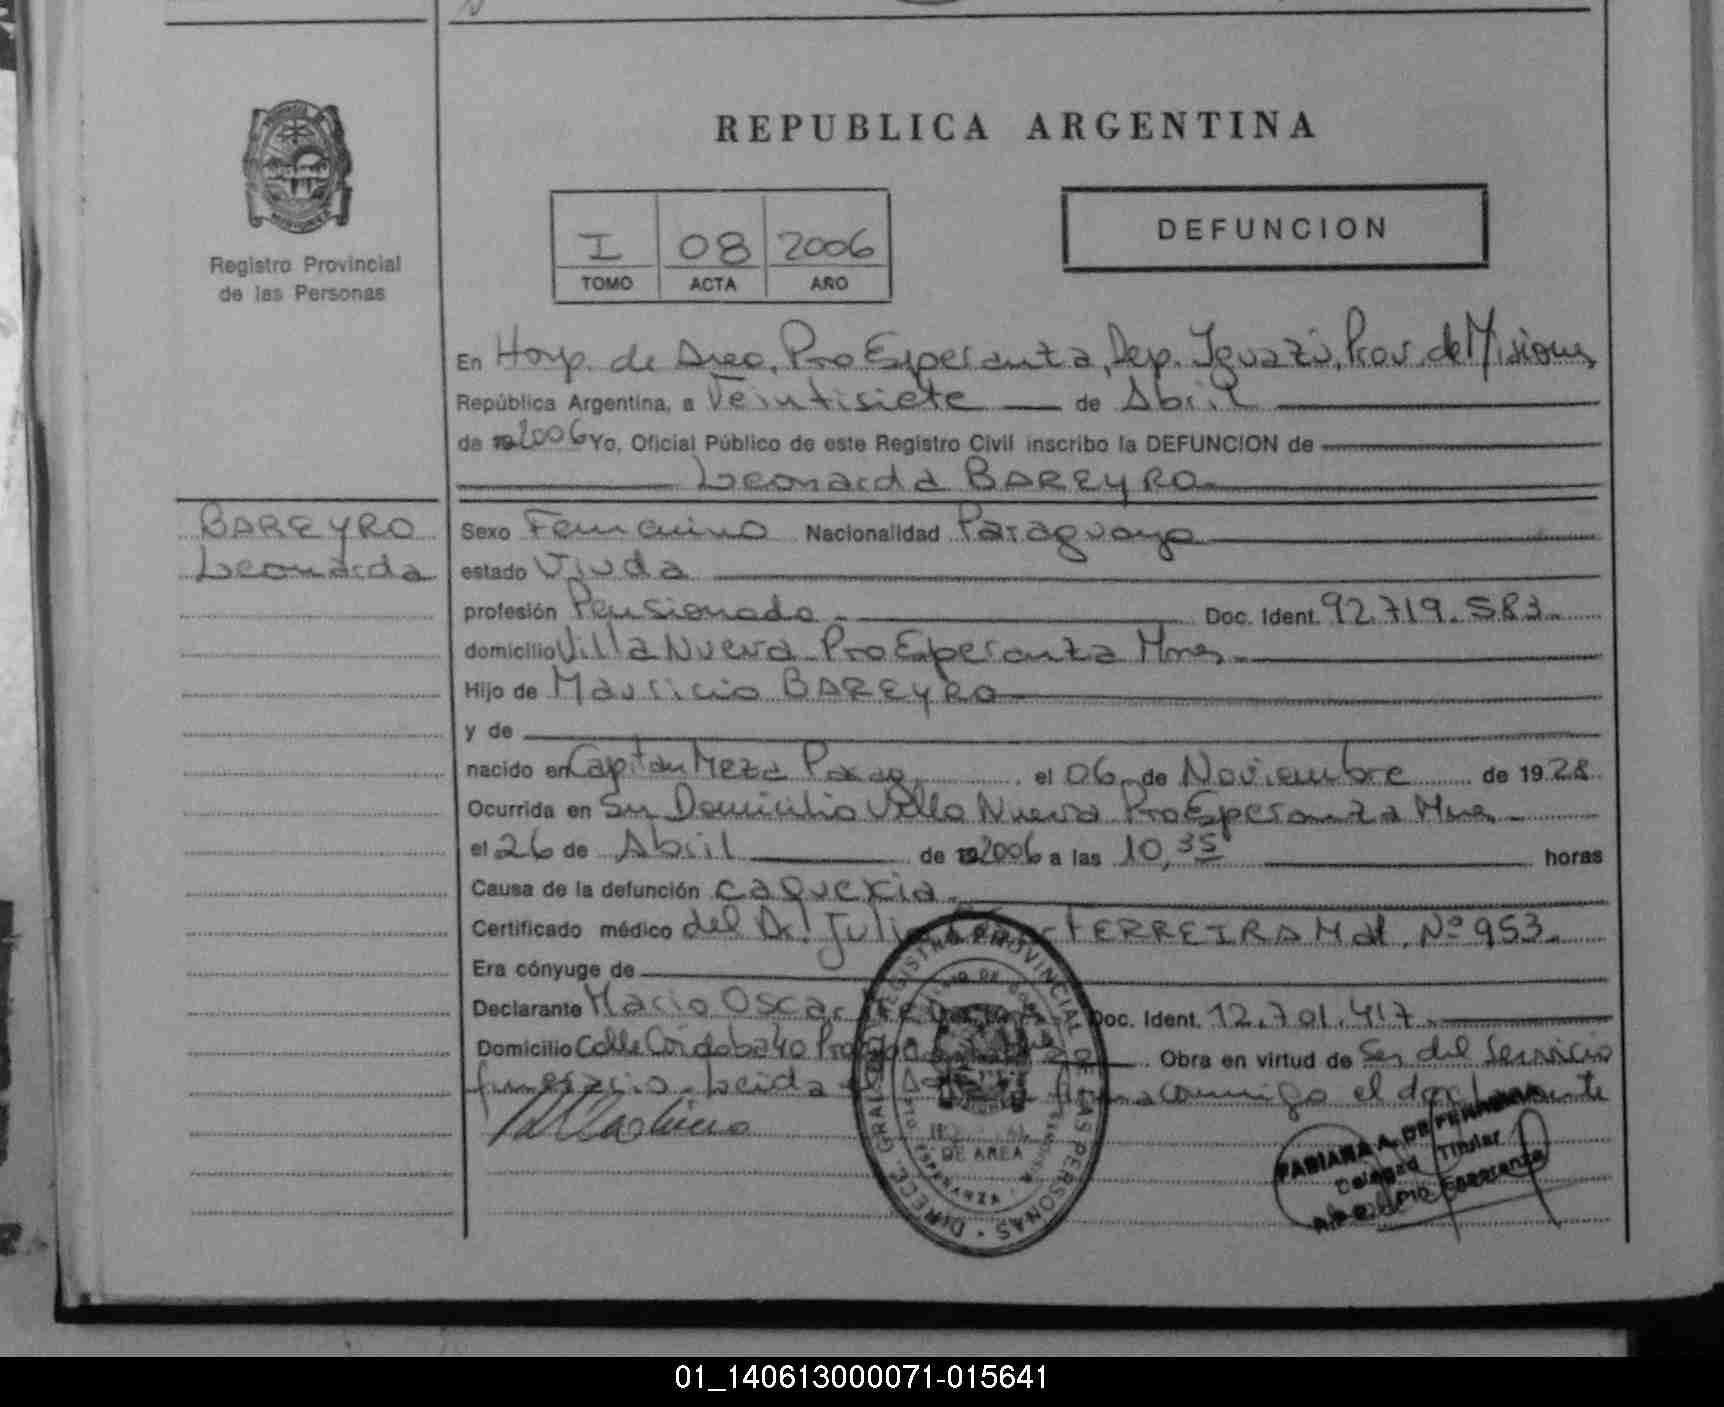 REPUBLICA ARGENTINA
Registro Provincial
de las Personas
I 08 2006
TOMO ACTA AÑO
DEFUNCION
En Hosp. de Area, Pto Esperanza, Dep. Iguazú, Prov. de Misiones
República Argentina, a Veintisiete de Abril
de 19 2006 Yo, Oficial Público de este Registro Civil inscribo la DEFUNCION de
Leonarda BAREYRO
BAREYRO
Leonarda
Sexo Femenino Nacionalidad Paraguaya
estado Viuda
profesión Pensionada Doc. Ident. 92.719.583
domicilio Villa Nueva Pto Esperanza Mnes
Hijo de Mauricio BAREYRO
y de
nacido en Capitan Meza Parag. el 06 de Noviembre de 1928
Ocurrida en Su Domicilio Villa Nueva Pto Esperanza Mnes
el 26 de Abril de 19 2006 a las 10,35 horas
Causa de la defunción caquexia
Certificado médico del Dr. Julio FERREIRA Mat. Nº 953
Era cónyuge de
Declarante Mario Oscar Doc. Ident. 12.701.417
Domicilio Calle Córdoba 240 Obra en virtud de Ser del Servicio
funerario. Leida el firma conmigo el declarante
DIRECC. GRAL. DEL REGISTRO PROVINCIAL DE LAS PERSONAS
DE AREA
ESPERANZA
FABIANA A. DE FERREIRA
Delegad Titular
Pto Esperanza
01_140613000071-015641